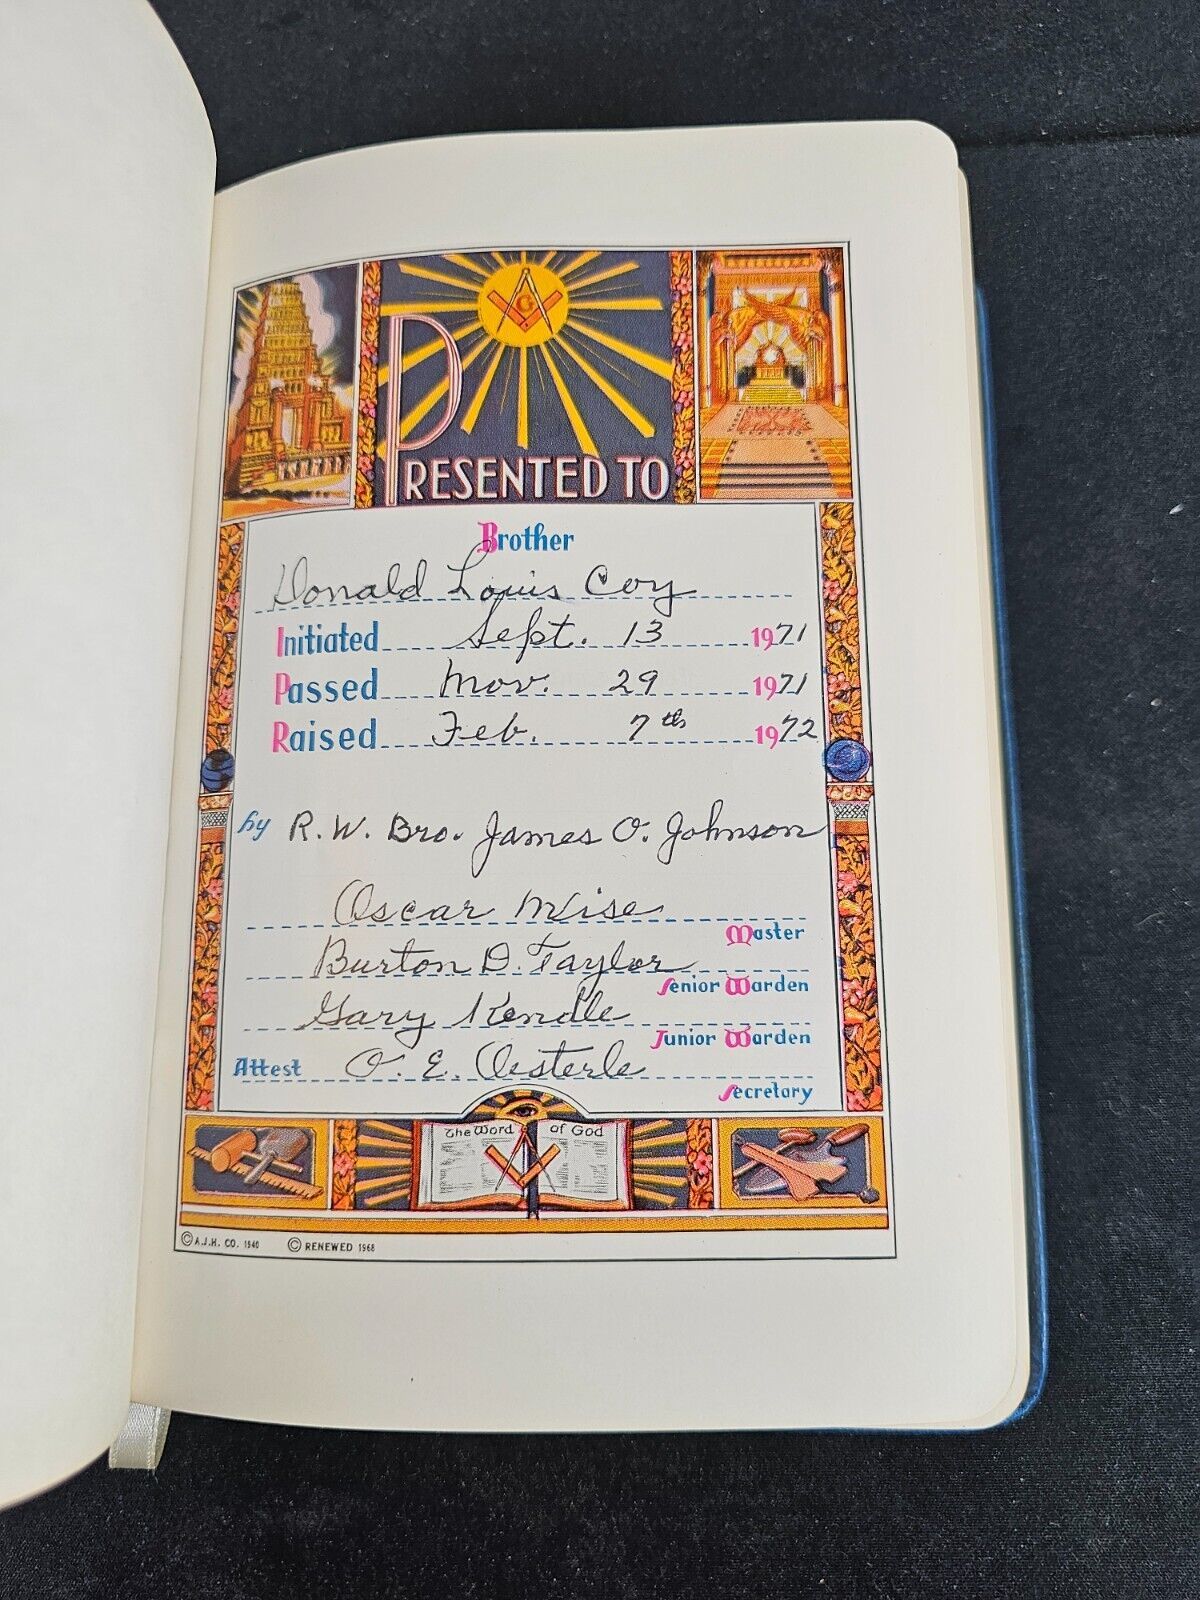 G
PRESENTED TO
Brother
Donald Louis Coy
Initiated Sept. 13 1971
Passed Nov. 29 1971
Raised Feb. 7th 1972
by R. W. Bro. James O. Johnson
Oscar Wise
Master
Burton D. Taylor
Senior Warden
Gary Kendle
Junior Warden
Attest O. E. Oesterle
Secretary
The Word of God
© A.J.H. CO. 1940 © RENEWED 1968